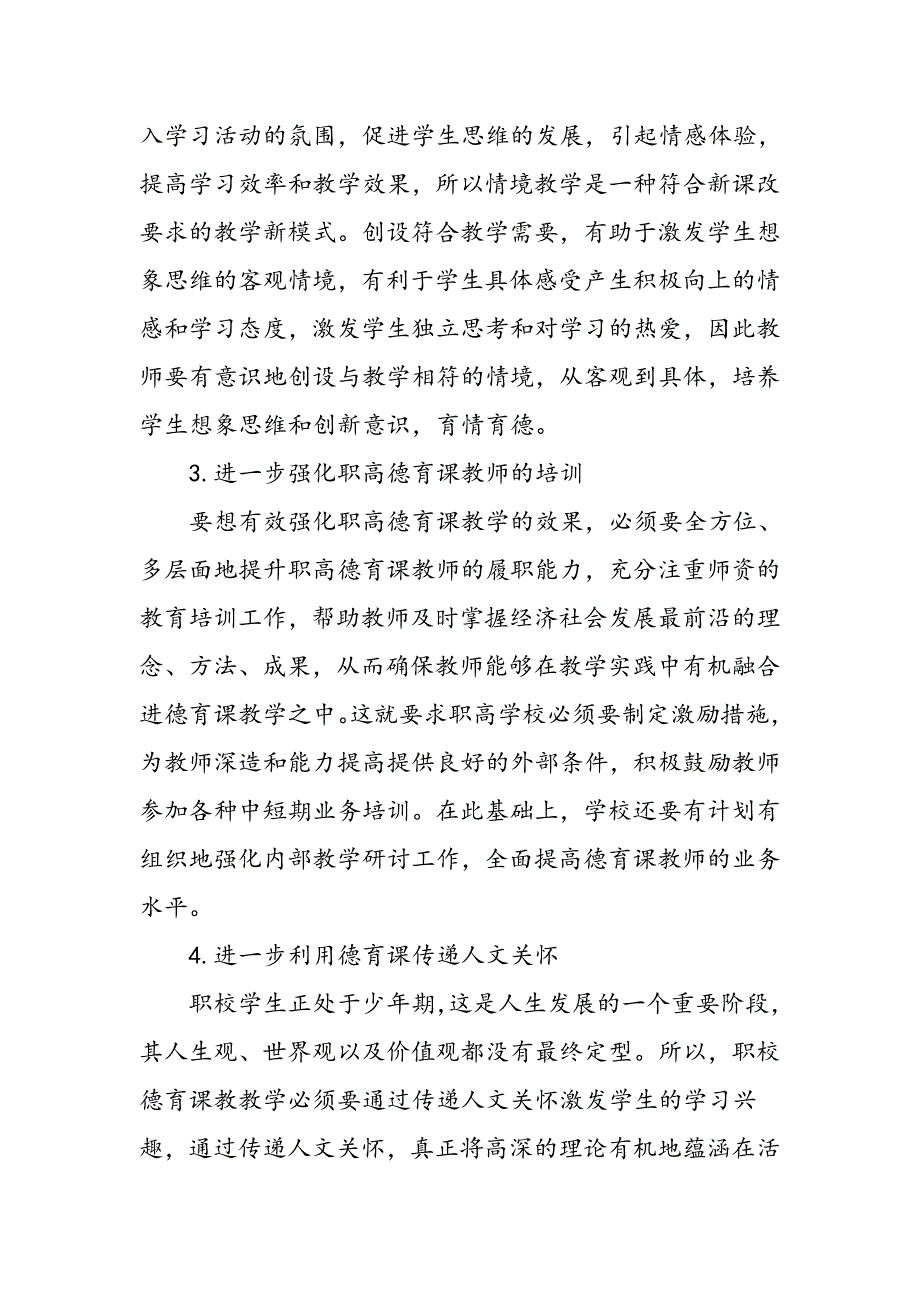 入学习活动的氛围，促进学生思维的发展，引起情感体验，
提高学习效率和教学效果，所以情境教学是一种符合新课改
要求的教学新模式。创设符合教学需要，有助于激发学生想
象思维的客观情境，有利于学生具体感受产生积极向上的情
感和学习态度，激发学生独立思考和对学习的热爱，因此教
师要有意识地创设与教学相符的情境，从客观到具体，培养
学生想象思维和创新意识，育情育德。
3.进一步强化职高德育课教师的培训
要想有效强化职高德育课教学的效果，必须要全方位、
多层面地提升职高德育课教师的履职能力，充分注重师资的
教育培训工作，帮助教师及时掌握经济社会发展最前沿的理
念、方法、成果，从而确保教师能够在教学实践中有机融合
进德育课教学之中。这就要求职高学校必须要制定激励措施，
为教师深造和能力提高提供良好的外部条件，积极鼓励教师
参加各种中短期业务培训。在此基础上，学校还要有计划有
组织地强化内部教学研讨工作，全面提高德育课教师的业务
水平。
4.进一步利用德育课传递人文关怀
职校学生正处于少年期，这是人生发展的一个重要阶段，
其人生观、世界观以及价值观都没有最终定型。所以，职校
德育课教教学必须要通过传递人文关怀激发学生的学习兴
趣，通过传递人文关怀，真正将高深的理论有机地蕴涵在活